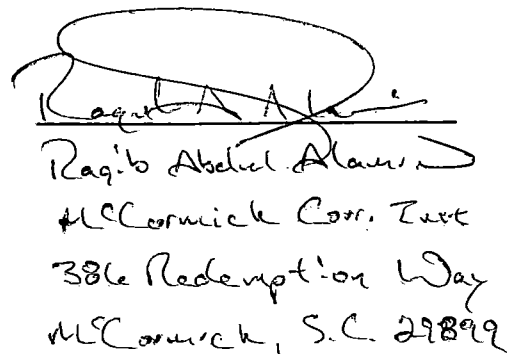 Raqib A Alamin
Raqib Abdul Alamin
McCormick Corr. Inst
386 Redemption Way
McCormick, S.C. 29899